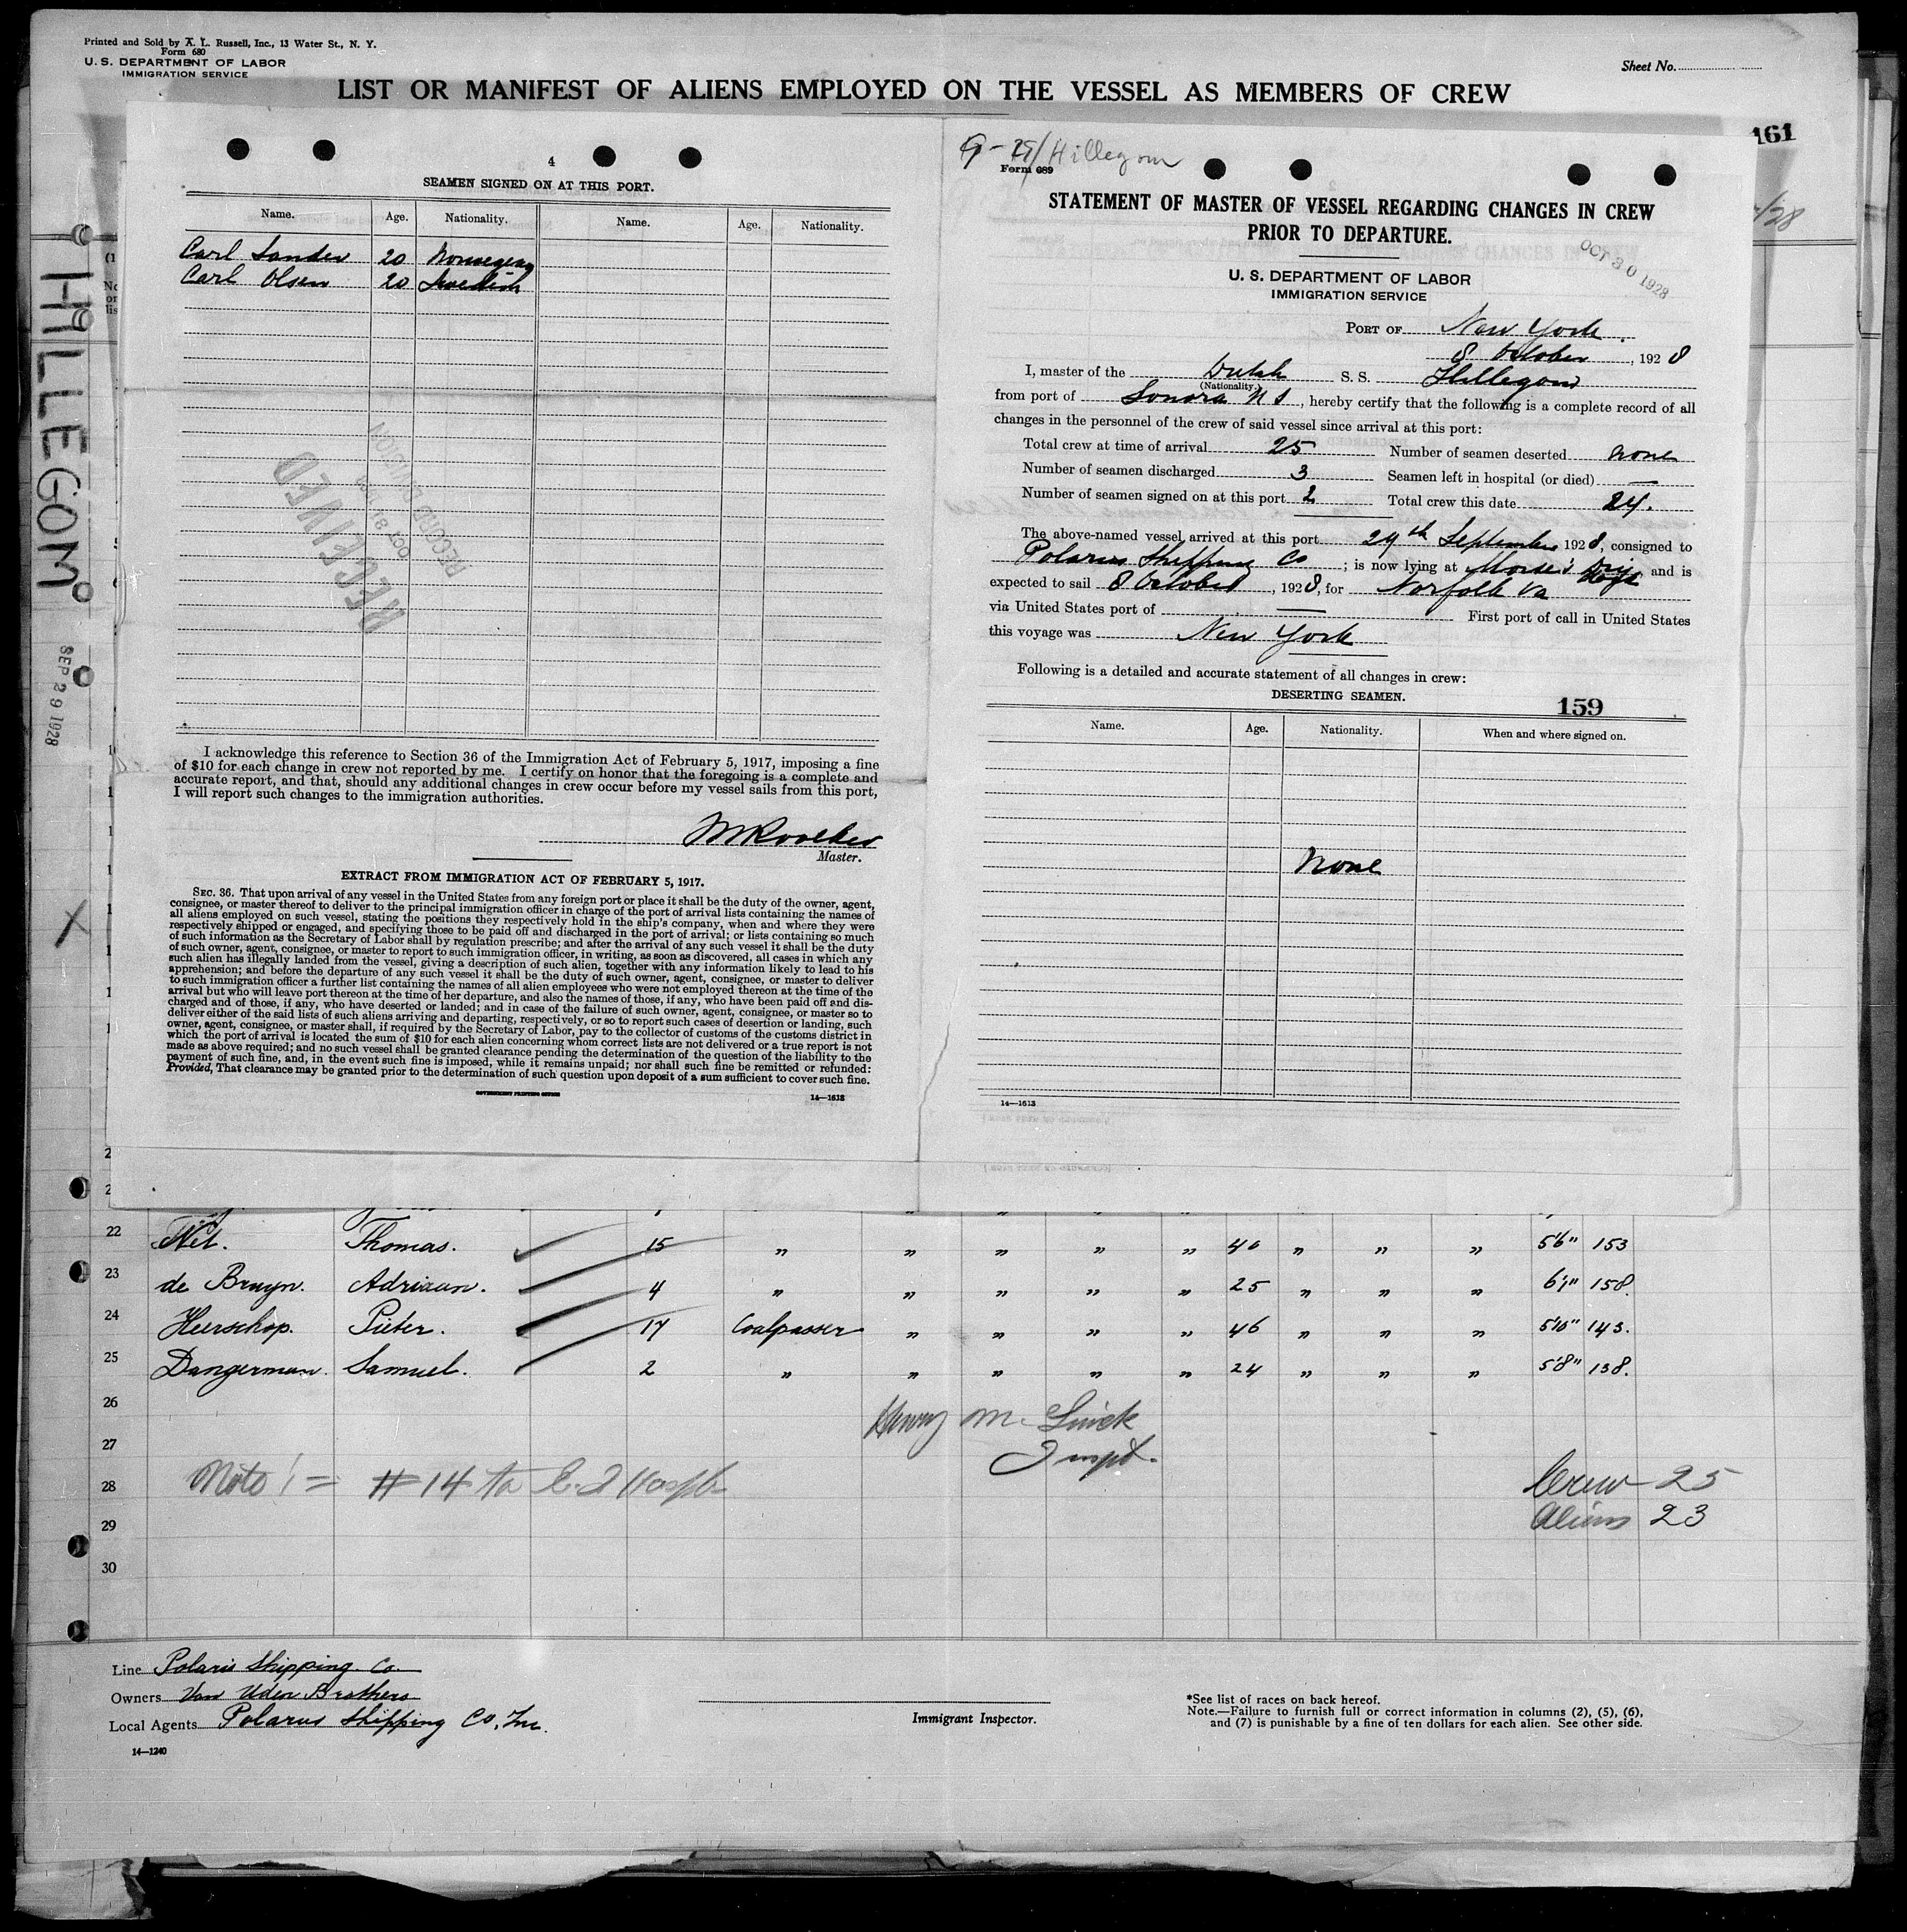 Printed and Sold by A. L. Russell, Inc., 13 Water St., N. Y.
Form 680
U. S. DEPARTMENT OF LABOR
IMMIGRATION SERVICE
Sheet No.
LIST OR MANIFEST OF ALIENS EMPLOYED ON THE VESSEL AS MEMBERS OF CREW
161
/28
HILLEGOM
SEP 29 1928
X
4
SEAMEN SIGNED ON AT THIS PORT.
Name. Age. Nationality. Name. Age. Nationality.
Carl Sander 20 Norwegian
Carl Olsen 20 Swedish
RECORD DIVISION
OCT 31
RECEIVED
I acknowledge this reference to Section 36 of the Immigration Act of February 5, 1917, imposing a fine
of $10 for each change in crew not reported by me. I certify on honor that the foregoing is a complete and
accurate report, and that, should any additional changes in crew occur before my vessel sails from this port,
I will report such changes to the immigration authorities.
Master.
EXTRACT FROM IMMIGRATION ACT OF FEBRUARY 5, 1917.
SEC. 36. That upon arrival of any vessel in the United States from any foreign port or place it shall be the duty of the owner, agent,
consignee, or master thereof to deliver to the principal immigration officer in charge of the port of arrival lists containing the names of
all aliens employed on such vessel, stating the positions they respectively hold in the ship's company, when and where they were
respectively shipped or engaged, and specifying those to be paid off and discharged in the port of arrival; or lists containing so much
of such information as the Secretary of Labor shall by regulation prescribe; and after the arrival of any such vessel it shall be the duty
of such owner, agent, consignee, or master to report to such immigration officer, in writing, as soon as discovered, all cases in which any
such alien has illegally landed from the vessel, giving a description of such alien, together with any information likely to lead to his
apprehension; and before the departure of any such vessel it shall be the duty of such owner, agent, consignee, or master to deliver
to such immigration officer a further list containing the names of all alien employees who were not employed thereon at the time of the
arrival but who will leave port thereon at the time of her departure, and also the names of those, if any, who have been paid off and dis-
charged and of those, if any, who have deserted or landed; and in case of the failure of such owner, agent, consignee, or master so to
deliver either of the said lists of such aliens arriving and departing, respectively, or so to report such cases of desertion or landing, such
owner, agent, consignee, or master shall, if required by the Secretary of Labor, pay to the collector of customs of the customs district in
which the port of arrival is located the sum of $10 for each alien concerning whom correct lists are not delivered or a true report is not
made as above required; and no such vessel shall be granted clearance pending the determination of the question of the liability to the
payment of such fine, and, in the event such fine is imposed, while it remains unpaid; nor shall such fine be remitted or refunded:
Provided, That clearance may be granted prior to the determination of such question upon deposit of a sum sufficient to cover such fine.
GOVERNMENT PRINTING OFFICE 14—1613
Hillegom
Form 689
STATEMENT OF MASTER OF VESSEL REGARDING CHANGES IN CREW
PRIOR TO DEPARTURE.
OCT 30 1928
U. S. DEPARTMENT OF LABOR
IMMIGRATION SERVICE
PORT OF New York
8 October, 1928
I, master of the Dutch S. S. Hillegom
(Nationality.)
from port of Sonora N S, hereby certify that the following is a complete record of all
changes in the personnel of the crew of said vessel since arrival at this port:
Total crew at time of arrival 25 Number of seamen deserted None
Number of seamen discharged 3 Seamen left in hospital (or died) —
Number of seamen signed on at this port 2 Total crew this date 24.
The above-named vessel arrived at this port 29th September 1928, consigned to
Polarus Shipping Co; is now lying at Morse's Dry Dock, and is
expected to sail 8 October, 1928, for Norfolk Va
via United States port of — First port of call in United States
this voyage was New York
Following is a detailed and accurate statement of all changes in crew:
DESERTING SEAMEN.
159
Name. Age. Nationality. When and where signed on.
None
14—1613
22 Thomas. 15 " " " " " 40 " " " 5'6" 153
23 de Bruyn. Adriaan. 4 " " " " " 25 " " " 6'1" 158.
24 Heerschop. Pieter. 17 Coalpasser " " " " 46 " " " 5'10" 143.
25 Dangerman. Samuel. 2 " " " " " 24 " " " 5'8" 138.
26
Henry M.
27
Inspt.
28 Note! = #14 to Hosp Crew 25
29 Aliens 23
30
Line Polaris Shipping Co.
Owners Van Uden Brothers
Local Agents Polarus Shipping Co, Inc.
14—1240
Immigrant Inspector.
*See list of races on back hereof.
Note.—Failure to furnish full or correct information in columns (2), (5), (6),
and (7) is punishable by a fine of ten dollars for each alien. See other side.